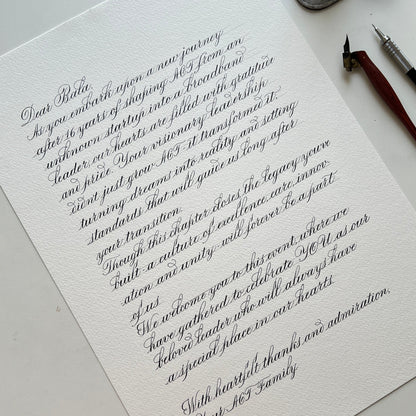 Dear Bala,
As you embark upon a new journey
after 16 years of shaping ACT from an
unknown startup into a broadband
leader, our hearts are filled with gratitude
and pride. Your visionary leadership
didn't just grow ACT, it transformed it;
turning dreams into reality and setting
standards that will guide us long after
your transition.
Though this chapter closes, the legacy you've
built - a culture of excellence, care, innov-
ation and unity - will forever be a part
of us.
We welcome you to this event, where we
have gathered to celebrate YOU as our
beloved leader who will always have
a special place in our hearts.
With heartfelt thanks and admiration,
Your ACT Family